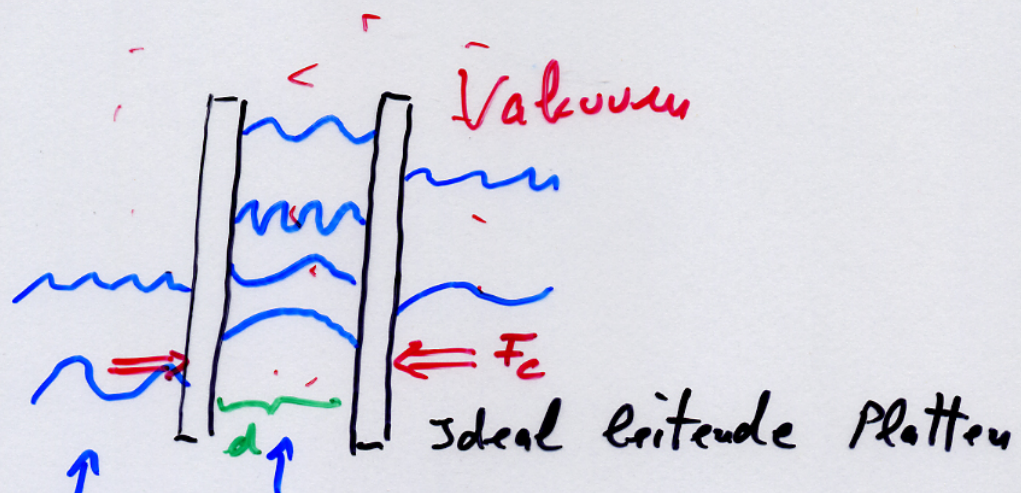 Vakuum
F_c
d
Ideal leitende Platten